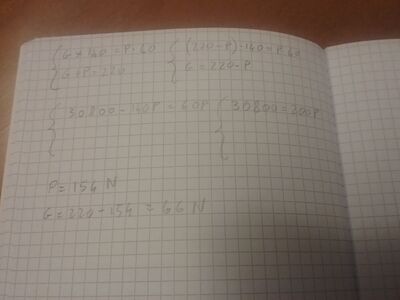 G * 140 = P * 60 (220 - P) * 140 = P * 60
G + P = 220 G = 220 - P
30800 - 140P = 60P 30800 = 200P
P = 154 N
G = 220 - 154 = 66 N